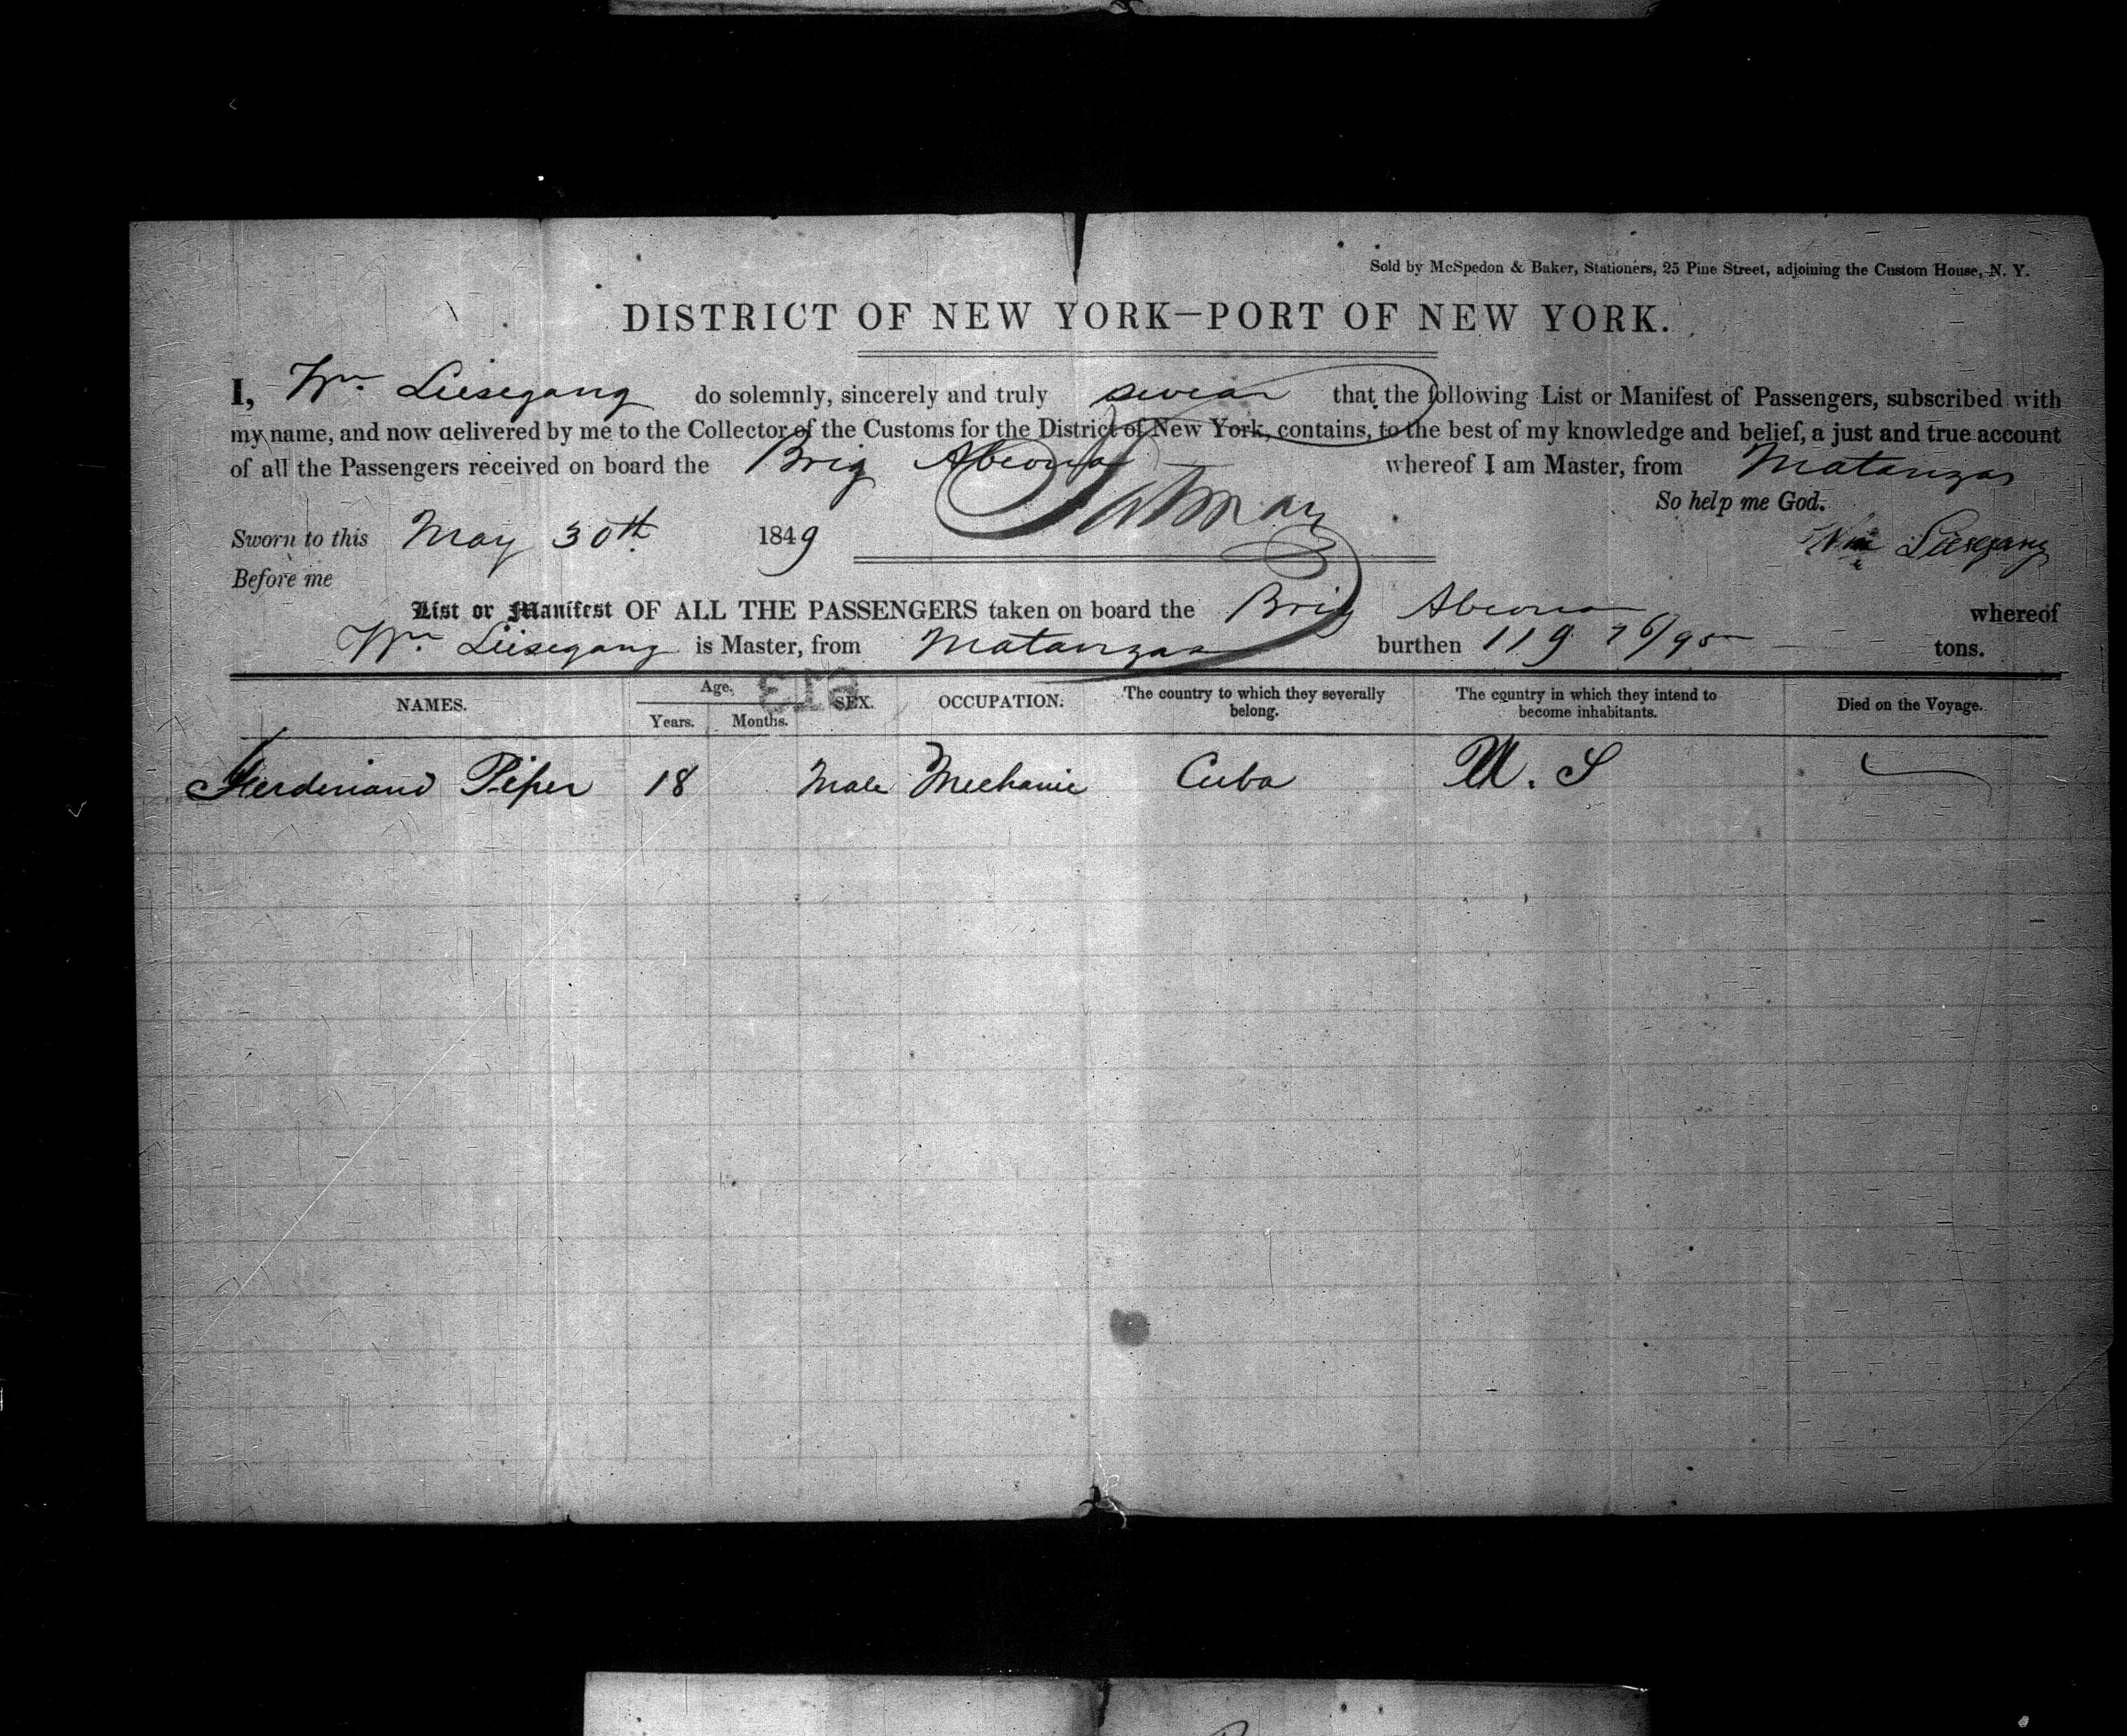 Sold by McSpedon & Baker, Stationers, 25 Pine Street, adjoining the Custom House, N. Y.
DISTRICT OF NEW YORK—PORT OF NEW YORK.
I, Wm Liesegang do solemnly, sincerely and truly swear that the following List or Manifest of Passengers, subscribed with
my name, and now delivered by me to the Collector of the Customs for the District of New York, contains, to the best of my knowledge and belief, a just and true account
of all the Passengers received on board the Brig Abeona whereof I am Master, from Matanzas
So help me God.
Sworn to this May 30th 1849 Wm Liesegang
Before me
List or Manifest OF ALL THE PASSENGERS taken on board the Brig Abeona whereof
Wm Liesegang is Master, from Matanzas burthen 119 76/95 tons.
NAMES. Age, Years. Months. SEX. OCCUPATION. The country to which they severally belong. The country in which they intend to become inhabitants. Died on the Voyage.
Ferdinand Piper 18 Male Mechanic Cuba U. S